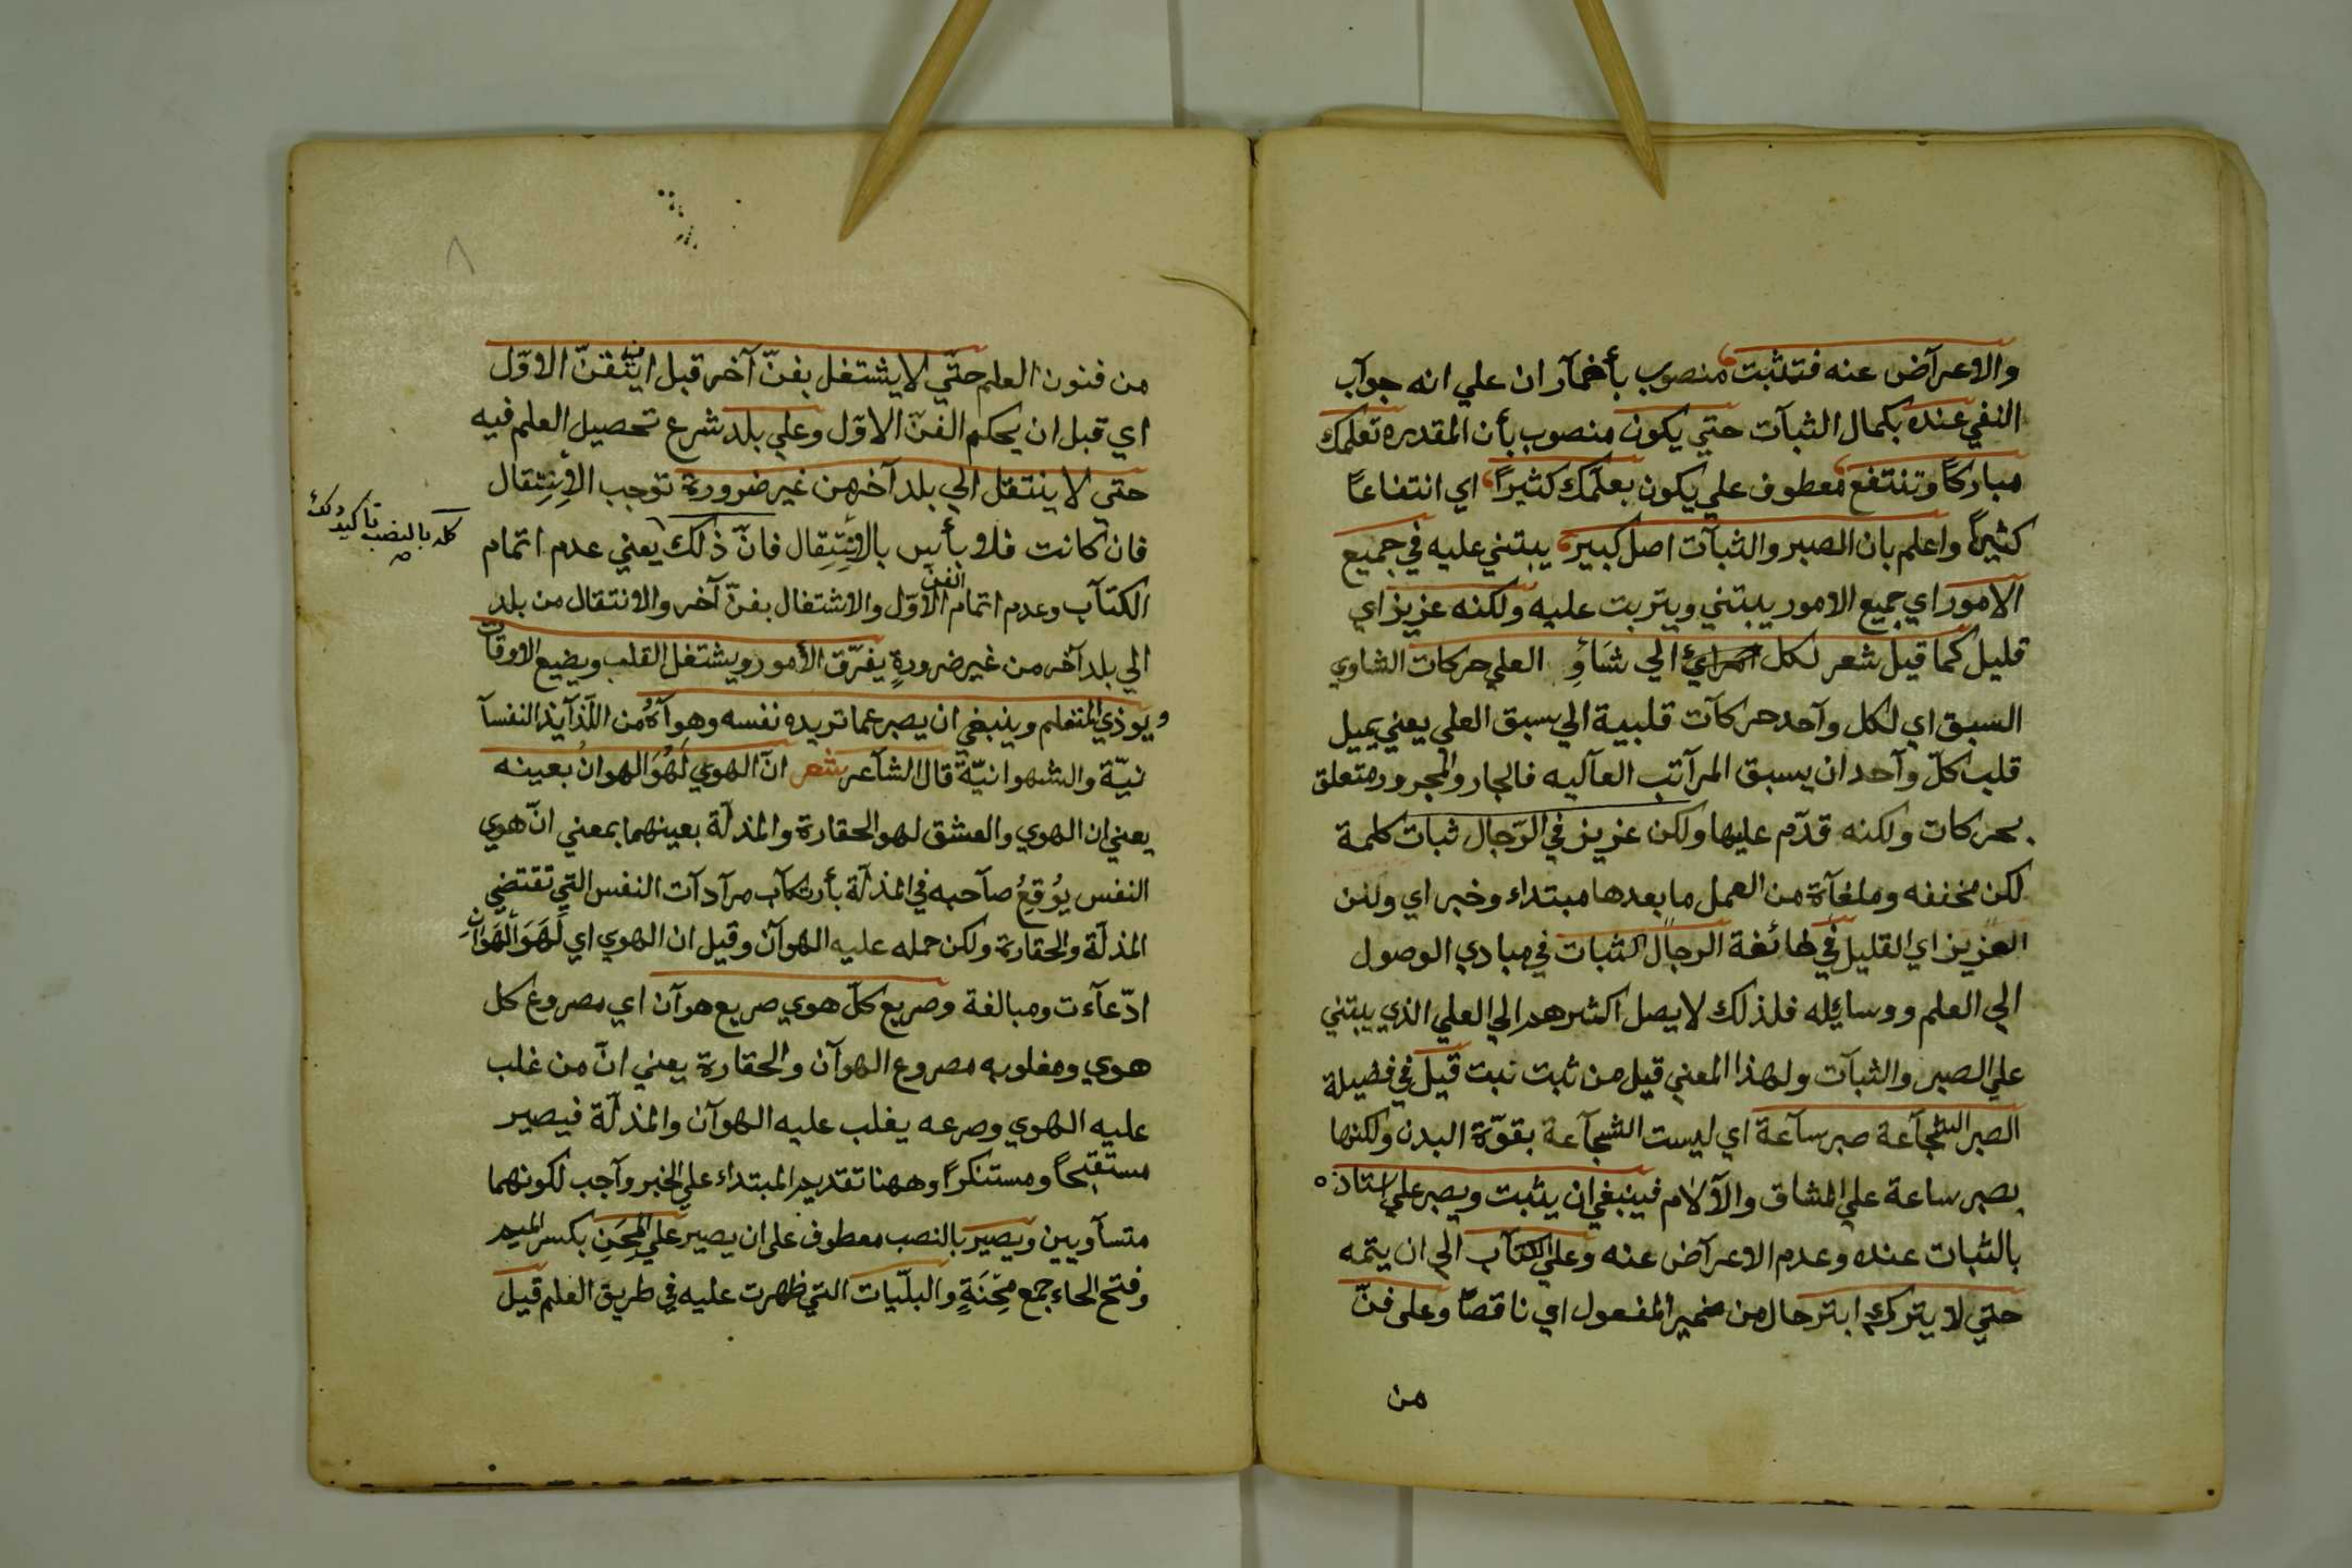 والاعرآض عنه فتثبت منصوب بأضمآر ان علي انه جوآب
النفي عنده بكمال الثبآت حتي يكون منصوب بأن المقدره تعلمك
مباركاً وتنتفع معطوف علي يكون بعلمك كثيراً اي انتفاعاً
كثيراً واعلم بان الصبر والثبآت اصل كبير يبتني عليه في جميع
الامور اي جميع الامور يبتني ويتربت عليه ولكنه عزيز اي
قليل كما قيل شعر لكل الي شَأوِ العلي حركات الشاوي
السبق اي لكل وآحد حركآت قلبية الي سبق العلي يعني يميل
قلب كلّ وآحد ان يسبق المرآتب العآليه فالجار والمجرور متعلق
بحركات ولكنه قدّم عليها ولكن عزيز في الرّجال ثبات كلمة
لكن مخففه وملغآة من العمل ما بعدها مبتداء وخبر اي ولكن
العزيز اي القليل في طائفة الرجال الثبات في مبادي الوصول
الي العلم ووسايله فلذلك لا يصل اكثرهم الي العلي الذي يبتني
علي الصبر والثبآت ولهذا المعني قيل من ثبت نبت قيل في فضيلة
الصبر الشجآعة صبر سآعة اي ليست الشجآعة بقوّة البدن ولكنها
بصبر ساعة علي المشاق والآلام فينبغي ان يثبت ويصبر علي استاذه
بالثبات عنده وعدم الاعرآض عنه وعلي الكتآب الي ان يتمه
حتي لا يتركه ابتر حال من ضمير المفعول اي ناقصًا وعلى فنّ
من
من فنون العلم حتّي لا يشتغل بفنّ آخر قبل ان يتقنّ الاوّل
اي قبل ان يحكم الفنّ الاوّل وعلي بلد شرع تحصيل العلم فيه
حتي لا ينتقل الي بلد آخر من غير ضرورة توجب الاِنتِقال
فان كانت فلا بأس بالاِنتِقال فانّ ذلك يعني عدم اتمام
كله بالنصب تاكيد ذلك
الكتآب وعدم اتمام الفنّ الاوّل والاشتغال بفنّ آخر والانتقال من بلد
الي بلد آخر من غير ضرورةٍ يفرّق الأمور ويشتغل القلب ويضيع الاوقات
ويوذي المتعلم وينبغي ان يصبر عما تريده نفسه وهوآهُ من اللّذآيذ النفسآ
نيّة والشهوانيّة قال الشآعر شعر انّ الهوي لَهُوَ الهوانُ بعينه
يعني ان الهوي والعشق لهو الحقارة والمذلّة بعينهما بمعني انّ هوي
النفس يُوقِعُ صآحبه في المذلّة بأرتكآب مرآدآت النفس التي تقتضي
المذلّة والحقارة ولكن حمله عليه الهوآن وقيل ان الهوي اي لَهَوَ الهَوَآنِ
ادّعآءت ومبالغة وصريع كلّ هوي صريع هوآن اي مصروع كل
هوي ومغلوبه مصروع الهوآن والحقارة يعني انّ من غلب
عليه الهوي وصرعه يغلب عليه الهوآن والمذلّة فيصير
مستقبحًا ومستنكرًا وههنا تقديم المبتداء علي الخبر وآجب لكونهما
متسآويين ويصير بالنصب معطوف على ان يصير علي المِحَنِ بكسر الميم
وفتح الحاء جمع مِحْنَةٍ والبليّات التي ظهرت عليه في طريق العلم قيل